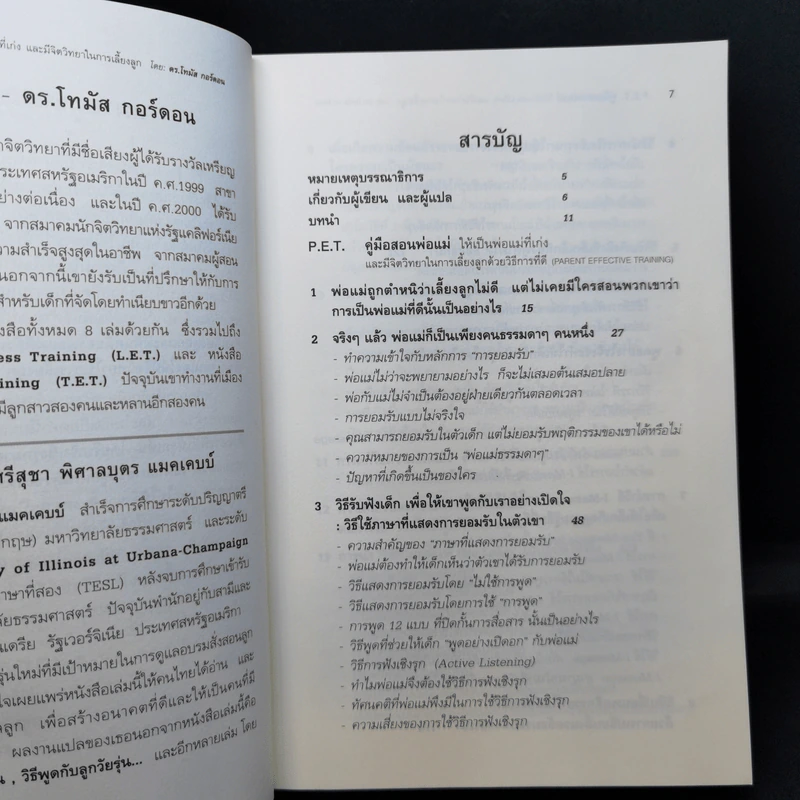 ที่เก่ง และมีจิตวิทยาในการเลี้ยงลูก โดย: ดร.โทมัส กอร์ดอน
- ดร.โทมัส กอร์ดอน
จิตวิทยาที่มีชื่อเสียงผู้ได้รับรางวัลเหรียญ
ประเทศสหรัฐอเมริกาในปี ค.ศ.1999 สาขา
อย่างต่อเนื่อง และในปี ค.ศ.2000 ได้รับ
จากสมาคมนักจิตวิทยาแห่งรัฐแคลิฟอร์เนีย
ความสำเร็จสูงสุดในอาชีพ จากสมาคมผู้สอน
นอกจากนี้เขายังรับเป็นที่ปรึกษาให้กับการ
สำหรับเด็กที่จัดโดยทำเนียบขาวอีกด้วย
สือทั้งหมด 8 เล่มด้วยกัน ซึ่งรวมไปถึง
ess Training (L.E.T.) และ หนังสือ
ining (T.E.T.) ปัจจุบันเขาทำงานที่เมือง
มีลูกสาวสองคนและหลานอีกสองคน
ศรีสุชา พิศาลบุตร แมคเคบบ์
แมคเคบบ์ สำเร็จการศึกษาระดับปริญญาตรี
กฤษ) มหาวิทยาลัยธรรมศาสตร์ และระดับ
y of Illinois at Urbana-Champaign
ภาษาที่สอง (TESL) หลังจบการศึกษาเข้ารับ
ลัยธรรมศาสตร์ ปัจจุบันพำนักอยู่กับสามีและ
นเดรีย รัฐเวอร์จิเนีย ประเทศสหรัฐอเมริกา
รุ่นใหม่ที่มีเป้าหมายในการดูแลอบรมสั่งสอนลูก
ใจเผยแพร่หนังสือเล่มนี้ให้คนไทยได้อ่าน และ
ลูก เพื่อสร้างอนาคตที่ดีและให้เป็นคนที่มี
ผลงานแปลของเธอนอกจากหนังสือเล่มนี้คือ
น , วิธีพูดกับลูกวัยรุ่น... และอีกหลายเล่ม โดย
7
สารบัญ
หมายเหตุบรรณาธิการ 5
เกี่ยวกับผู้เขียน และผู้แปล 6
บทนำ 11
P.E.T. คู่มือสอนพ่อแม่ ให้เป็นพ่อแม่ที่เก่ง
และมีจิตวิทยาในการเลี้ยงลูกด้วยวิธีการที่ดี (PARENT EFFECTIVE TRAINING)
1 พ่อแม่ถูกตำหนิว่าเลี้ยงลูกไม่ดี แต่ไม่เคยมีใครสอนพวกเขาว่า
การเป็นพ่อแม่ที่ดีนั้นเป็นอย่างไร 15
2 จริงๆ แล้ว พ่อแม่ก็เป็นเพียงคนธรรมดาๆ คนหนึ่ง 27
- ทำความเข้าใจกับหลักการ "การยอมรับ"
- พ่อแม่ไม่ว่าจะพยายามอย่างไร ก็จะไม่เสมอต้นเสมอปลาย
- พ่อกับแม่ไม่จำเป็นต้องอยู่ฝ่ายเดียวกันตลอดเวลา
- การยอมรับแบบไม่จริงใจ
- คุณสามารถยอมรับในตัวเด็ก แต่ไม่ยอมรับพฤติกรรมของเขาได้หรือไม่
- ความหมายของการเป็น "พ่อแม่ธรรมดาๆ"
- ปัญหาที่เกิดขึ้นเป็นของใคร
3 วิธีรับฟังเด็ก เพื่อให้เขาพูดกับเราอย่างเปิดใจ
: วิธีใช้ภาษาที่แสดงการยอมรับในตัวเขา 48
- ความสำคัญของ "ภาษาที่แสดงการยอมรับ"
- พ่อแม่ต้องทำให้เด็กเห็นว่าตัวเขาได้รับการยอมรับ
- วิธีแสดงการยอมรับโดย "ไม่ใช้การพูด"
- วิธีแสดงการยอมรับโดยการใช้ "การพูด"
- การพูด 12 แบบ ที่ปิดกั้นการสื่อสาร นั้นเป็นอย่างไร
- วิธีพูดที่ช่วยให้เด็ก "พูดอย่างเปิดอก" กับพ่อแม่
- วิธีการฟังเชิงรุก (Active Listening)
- ทำไมพ่อแม่จึงต้องใช้วิธีการฟังเชิงรุก
- ทัศนคติที่พ่อแม่พึงมีในการใช้วิธีการฟังเชิงรุก
- ความเสี่ยงของการใช้วิธีการฟังเชิงรุก